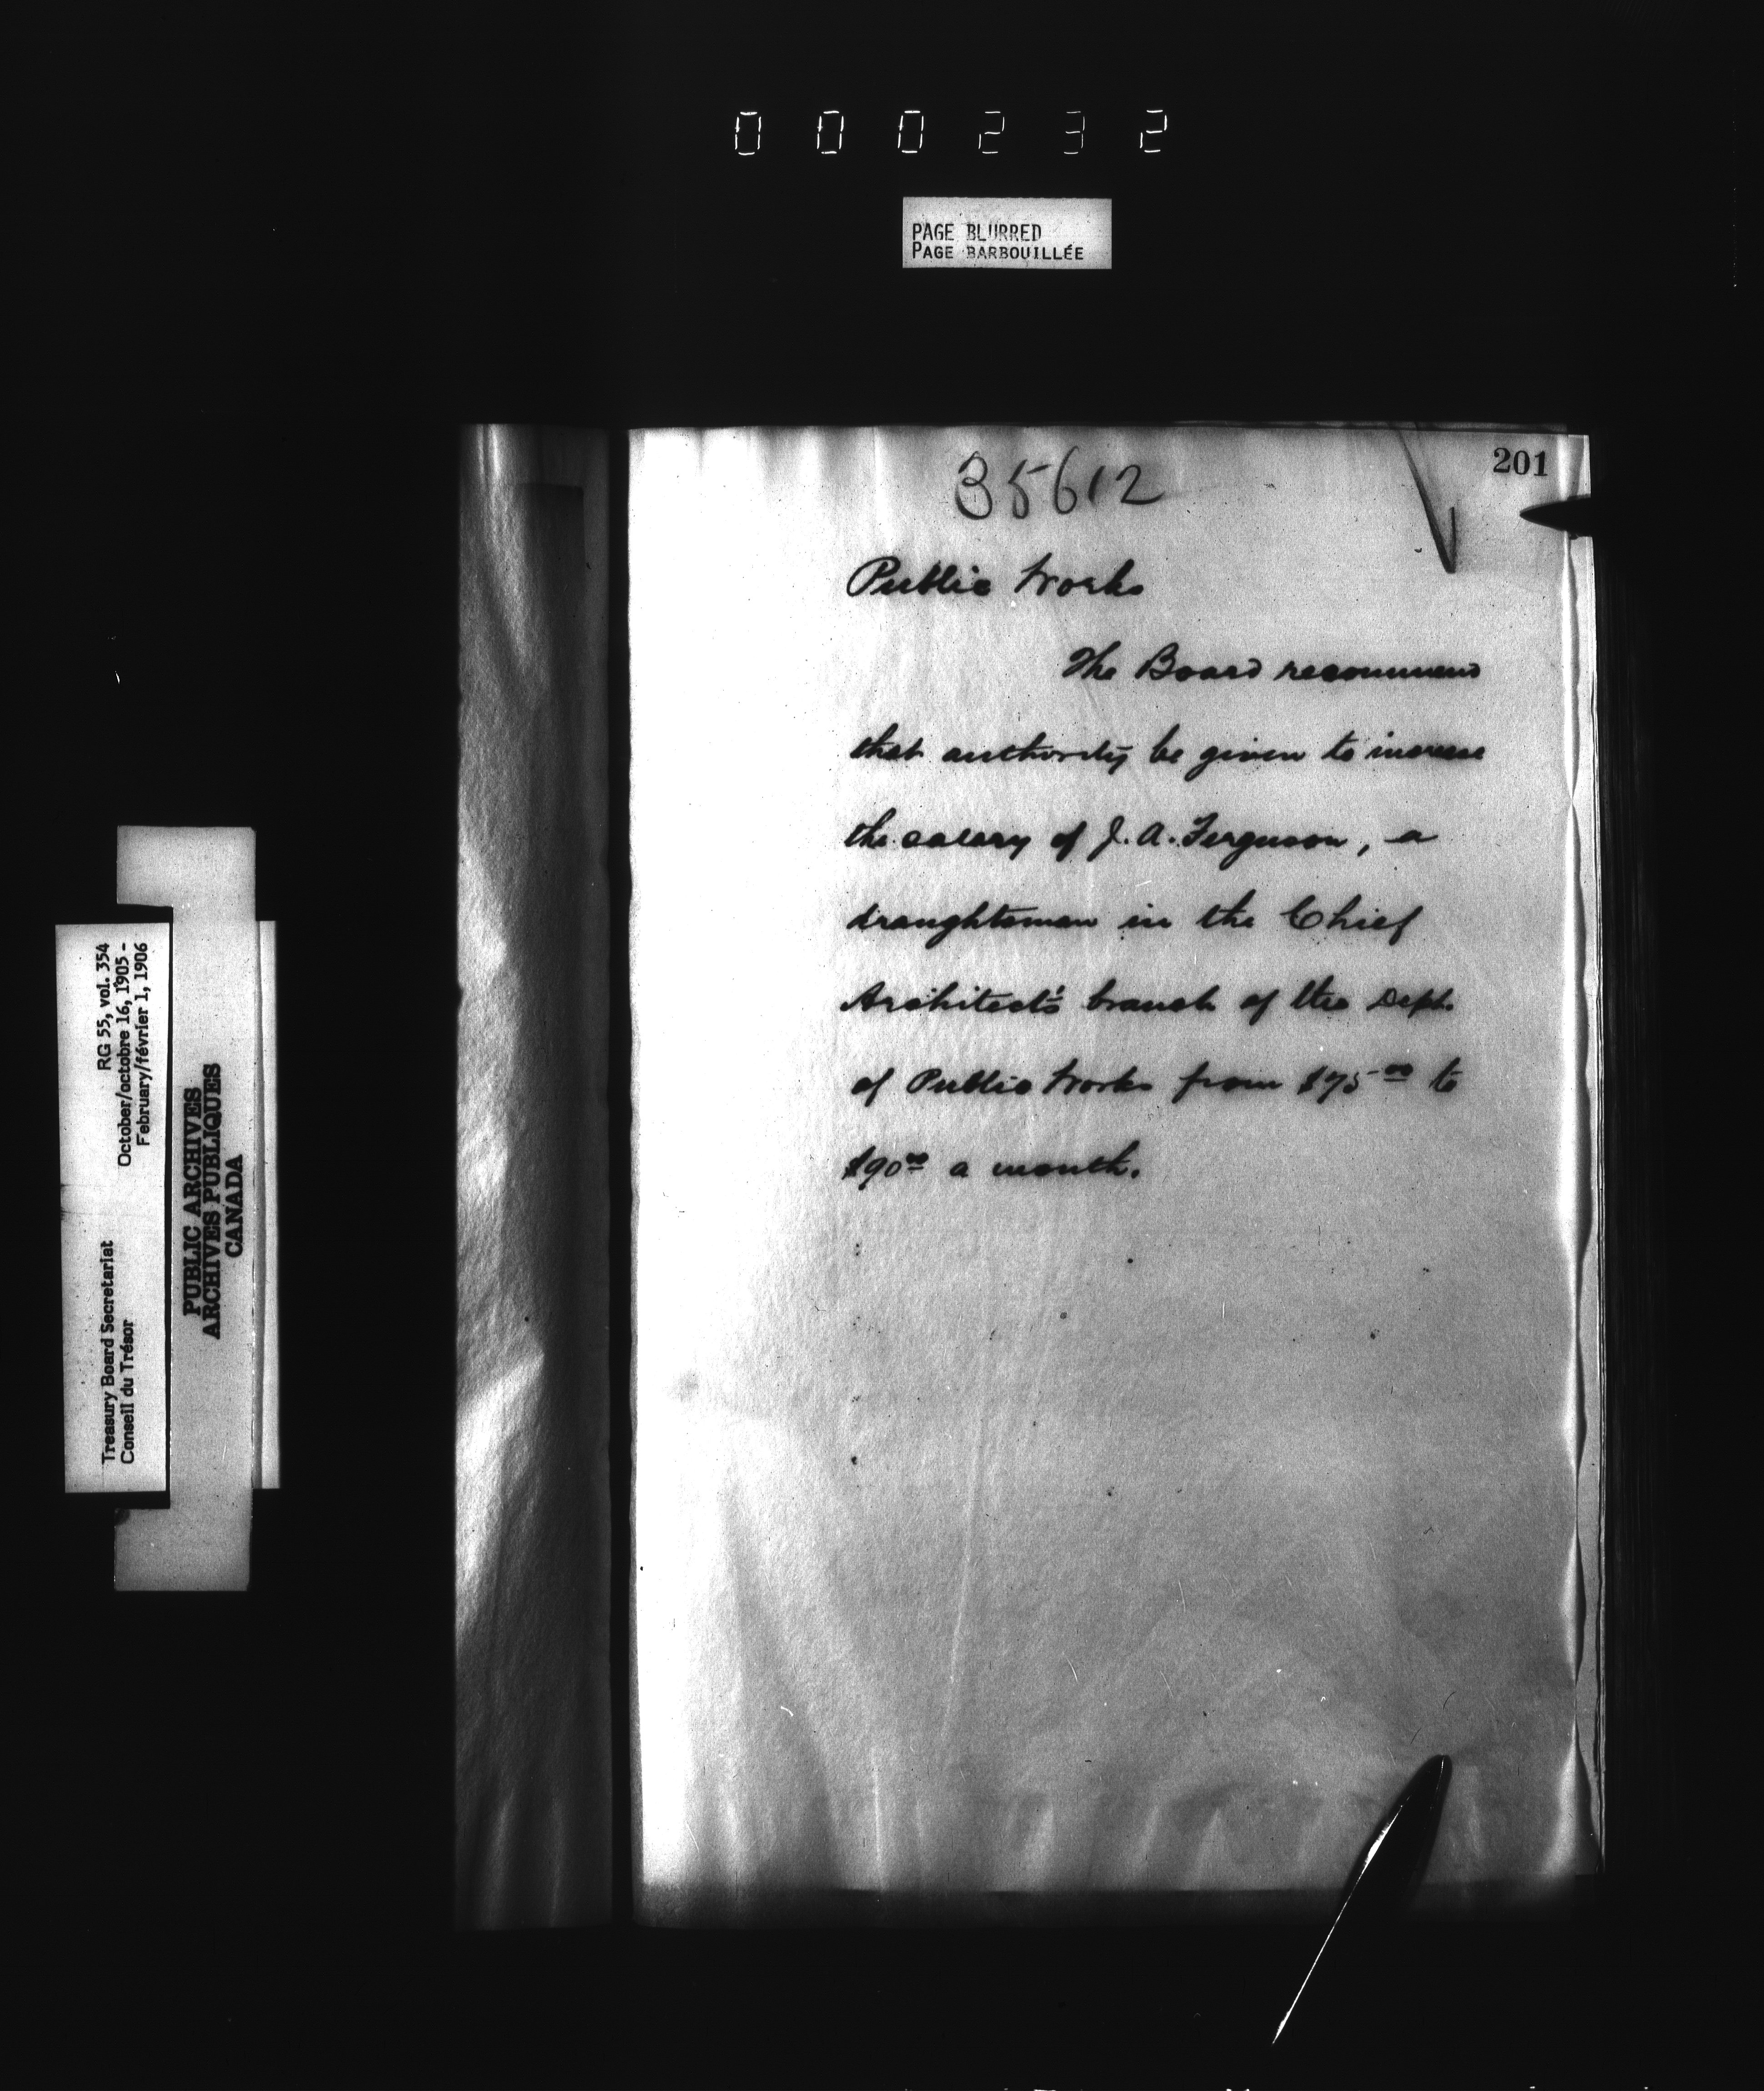 000232
PAGE BLURRED
PAGE BARBOUILLÉE
201
35612
Public Works
The Board recommend
that authority be given to increase
the salary of J. A. Ferguson, a
draughtsman in the Chief
Architect's branch of the Dept.
of Public Works from $75 00 to
$90 00 a month.
Treasury Board Secretariat RG 55, vol. 354
Conseil du Trésor October/octobre 16, 1905 -
February/février 1, 1906
PUBLIC ARCHIVES
ARCHIVES PUBLIQUES
CANADA